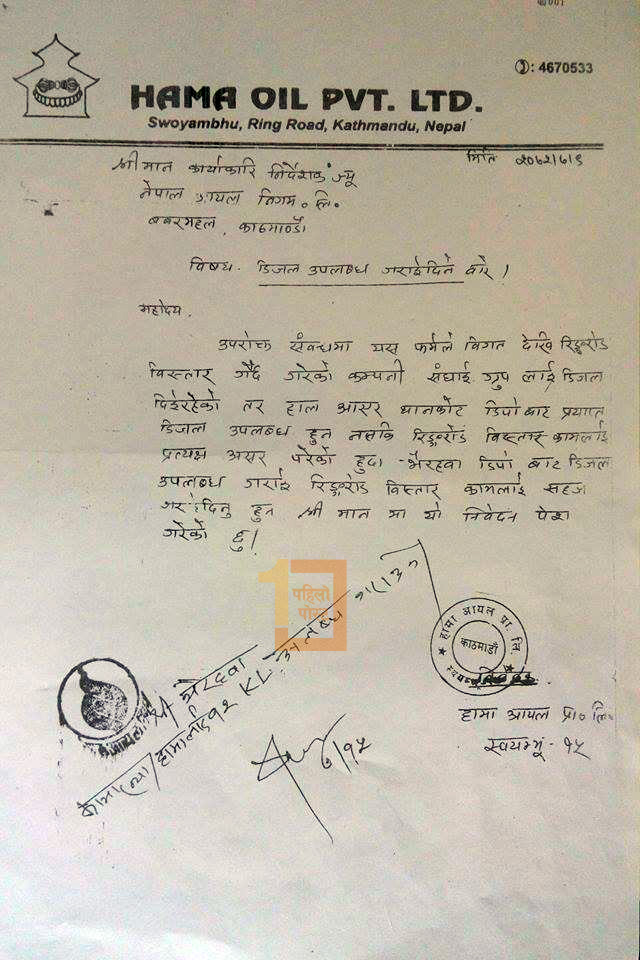 ☎: 4670533
HAMA OIL PVT. LTD.
Swoyambhu, Ring Road, Kathmandu, Nepal
मिति २०७२/७/९
श्रीमान कार्यकारि निर्देशक ज्यू
नेपाल आयल निगम० लि०
बबरमहल, काठमाण्डौ
विषय- डिजल उपलब्ध गराईदिने बारे।
महोदय,
उपरोक्त संवन्धमा यस फर्मले विगत देखि रिङ्गरोड
विस्तार गर्दै गरेको कम्पनी संघाई ग्रुप लाई डिजल
दिईरहेको तर हाल आएर थानकोट डिपो बाट प्रयाप्त
डिजल उपलब्ध हुन नसकि रिङ्गरोड विस्तार कामलाई
प्रत्यक्ष असर परेको हुदा भैरहवा डिपो बाट डिजल
उपलब्ध गराई रिङ्गरोड विस्तार कामलाई सहज
गरिदिनु हुन श्रीमान मा यो निवेदन पेश
गरेको छु।
पहिलो
पोस्ट
श्री भैरहवा
KL उपलब्ध गराउन
७/१५
हामा आयल प्रा. लि.
काठमाडौं
हामा आयल प्रा० लि०
स्वयम्भू - १५